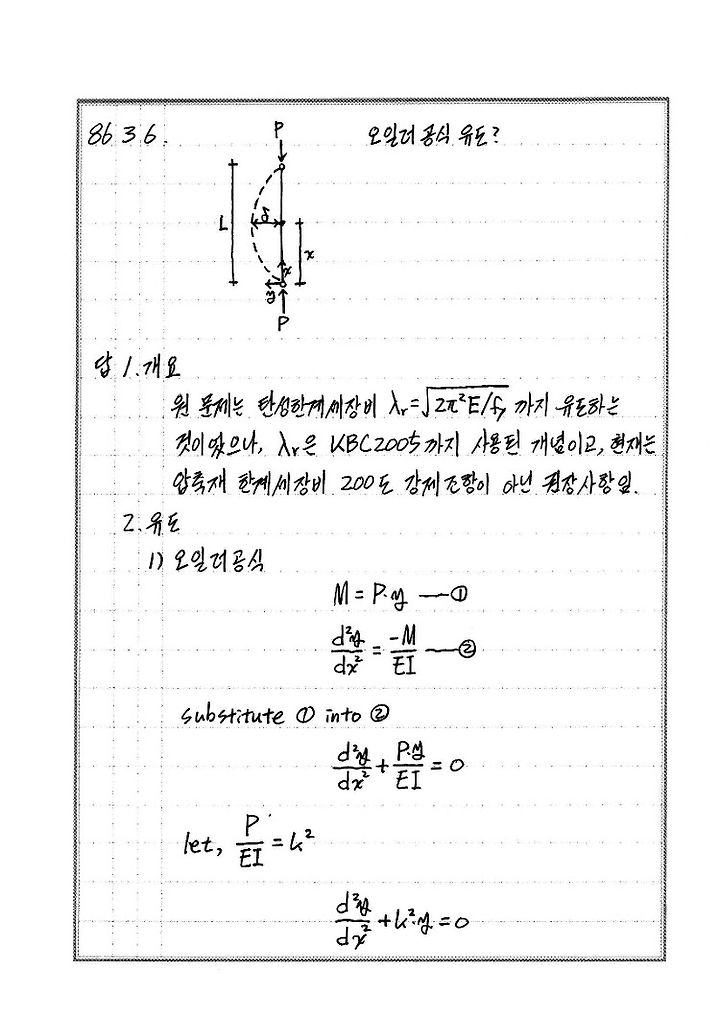 86 3 6.
오일러 공식 유도?
P
L
δ
x
x
y
P
답 1. 개요
원 문제는 탄성한계세장비 λr=√2π²E/fy 까지 유도하는
것이었으나, λr은 KBC2005까지 사용된 개념이고, 현재는
압축재 한계세장비 200도 강제조항이 아닌 권장사항임.
2. 유도
1) 오일러공식
M = P·y —①
d²y/dx² = -M/EI —②
substitute ① into ②
d²y/dx² + P·y/EI = 0
let, P/EI = k²
d²y/dx² + k²·y = 0